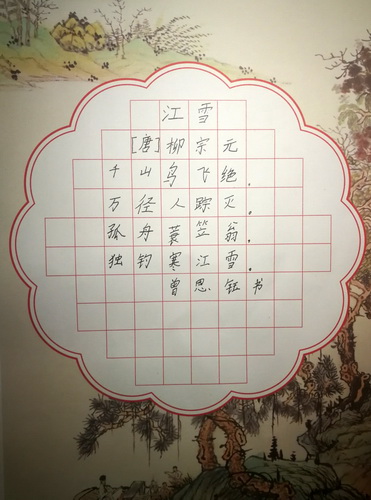 江雪
[唐]柳宗元
千山鸟飞绝.
万径人踪灭.
孤舟蓑笠翁.
独钓寒江雪.
曾思钰书